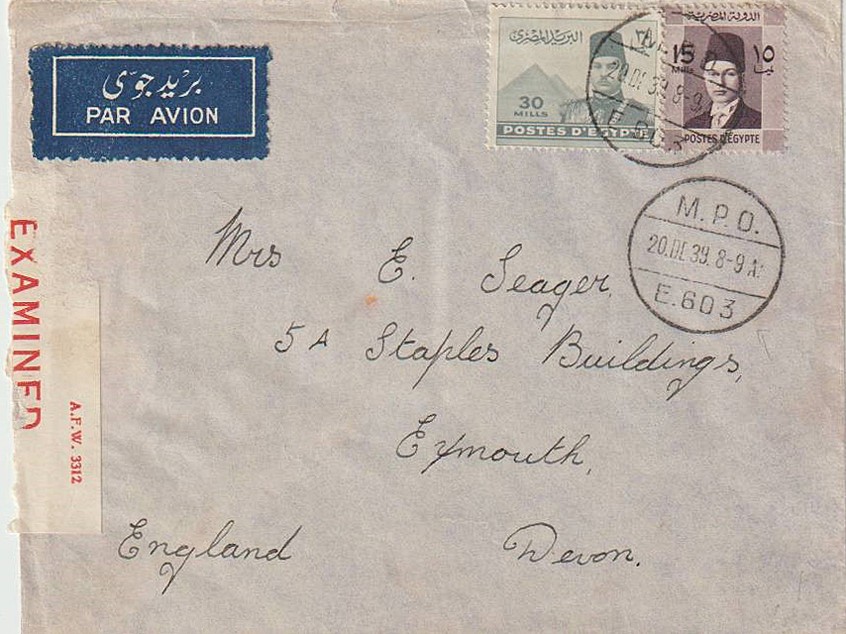 بريد جوى
PAR AVION
البريد المصرى
30
MILLS
POSTES D'EGYPTE
الدولة المصرية
15
Mills
١٥
POSTES D'EGYPTE
M.P.O.
20.DE 39. 8-9
E.603
M.P.O.
20.DE 39. 8-9 A
E.603
EXAMINED
A.F.W. 3312
Mrs E. Seager,
5A Staples Buildings,
Exmouth,
England Devon.